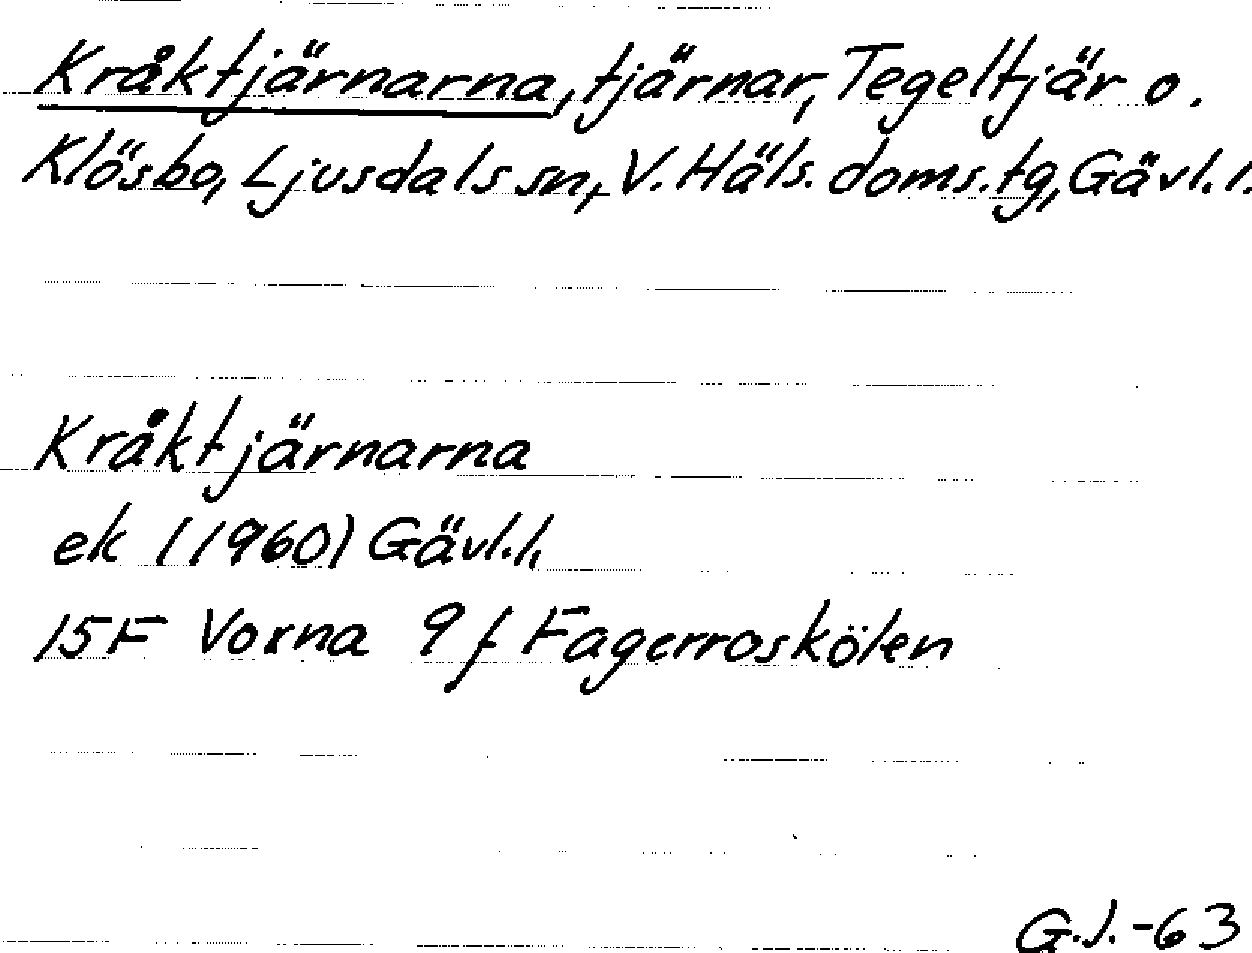 Kråktjärnarna, tjärnar, Tegeltjär o.
Klösbo, Ljusdals sn, V. Häls. doms.tg, Gävl.l.
Kråktjärnarna
ek (1960) Gävl.l.
15F Voxna 9f Fagerroskölen
G.J.-63